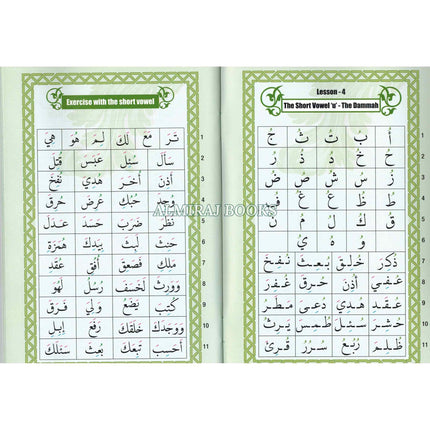 Exercise with the short vowel
تَرَ مَعَ لَكَ لِمَ هُوَ هِيَ 1
سَأَلَ سُئِلَ عَبَسَ قُتِلَ 2
أَذِنَ أُخَرَ هُدِيَ نُفِخَ 3
وَجَدَ حُبُكِ عَرَضَ حُرِقَ 4
نَظَرَ ضَرَبَ حَسَدَ عَدَلَ 5
بِيَدِكَ هُمَزَةِ 6
مَلِكِ فَصَعِقَ أُفُقِ عُقَدِ 7
وَوَرِثَ لَخَسَفَ رُسُلُ لَهُوَ 8
كُتِبَ يَضَعُ وَلِيَ فَرَقَ 9
وَوَجَدَكَ خَلَقَكَ رَفَعَ إِبِلِ 10
أَحَسِبَ تَبِعَكَ بُعِثَ سَئَلَكَ 11
ALMIRAJ BOOKS
Lesson - 4
The Short Vowel 'u' - The Dammah
أُ بُ تُ ثُ جُ 1
حُ خُ دُ ذُ رُ 2
زُ سُ شُ صُ ضُ 3
طُ ظُ عُ غُ فُ 4
قُ كُ لُ مُ نُ 5
وُ هُ يُ 6
ذُكِرَ خُلِقَ بُعِثَ نُفِخَ 7
عُفِيَ أُذُنَ حُرُقَ غُفِرَ 8
عُقَدَ هُدِيَ دُعِيَ مُطِرَ 9
حُشِرَ سُئِلَ طُمِسَ يَرِثُ 10
ظُلِمَ رُبُعُ سُرُرُ قُرِئَ 11